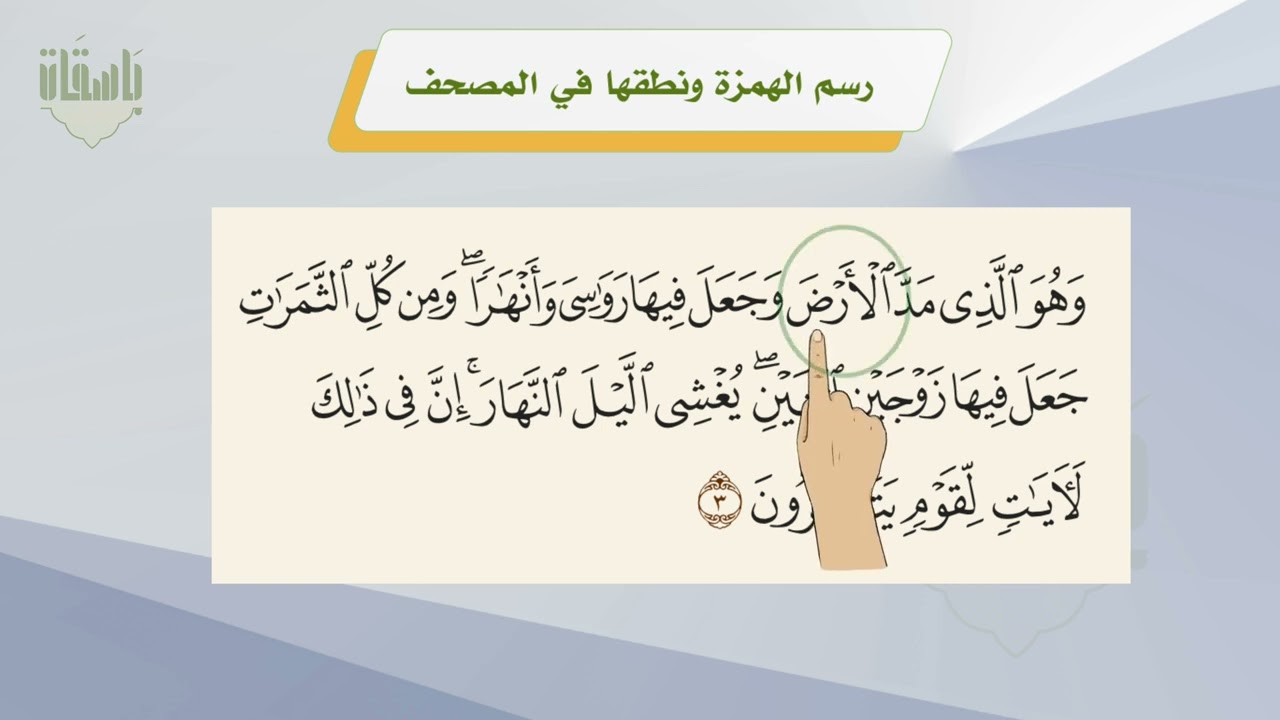 باسقات
رسم الهمزة ونطقها في المصحف
وَهُوَ ٱلَّذِى مَدَّ ٱلْأَرْضَ وَجَعَلَ فِيهَا رَوَٰسِىَ وَأَنْهَٰرًا ۖ وَمِن كُلِّ ٱلثَّمَرَٰتِ
جَعَلَ فِيهَا زَوْجَيْنِ ۖ يُغْشِى ٱلَّيْلَ ٱلنَّهَارَ ۚ إِنَّ فِى ذَٰلِكَ
لَـَٔايَـٰتٍ لِّقَوْمٍ ٣